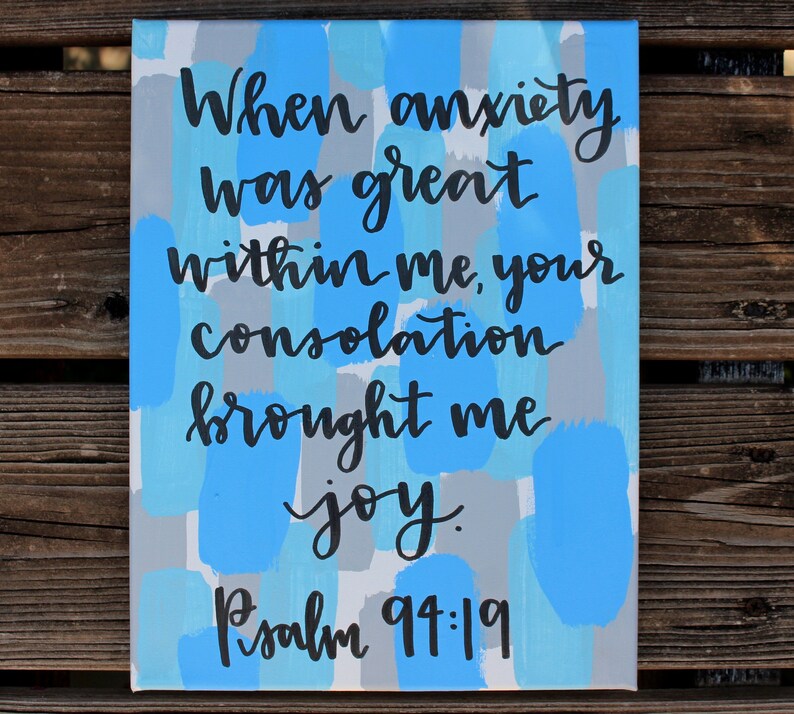 When anxiety
was great
within me, your
consolation
brought me
joy.
Psalm 94:19